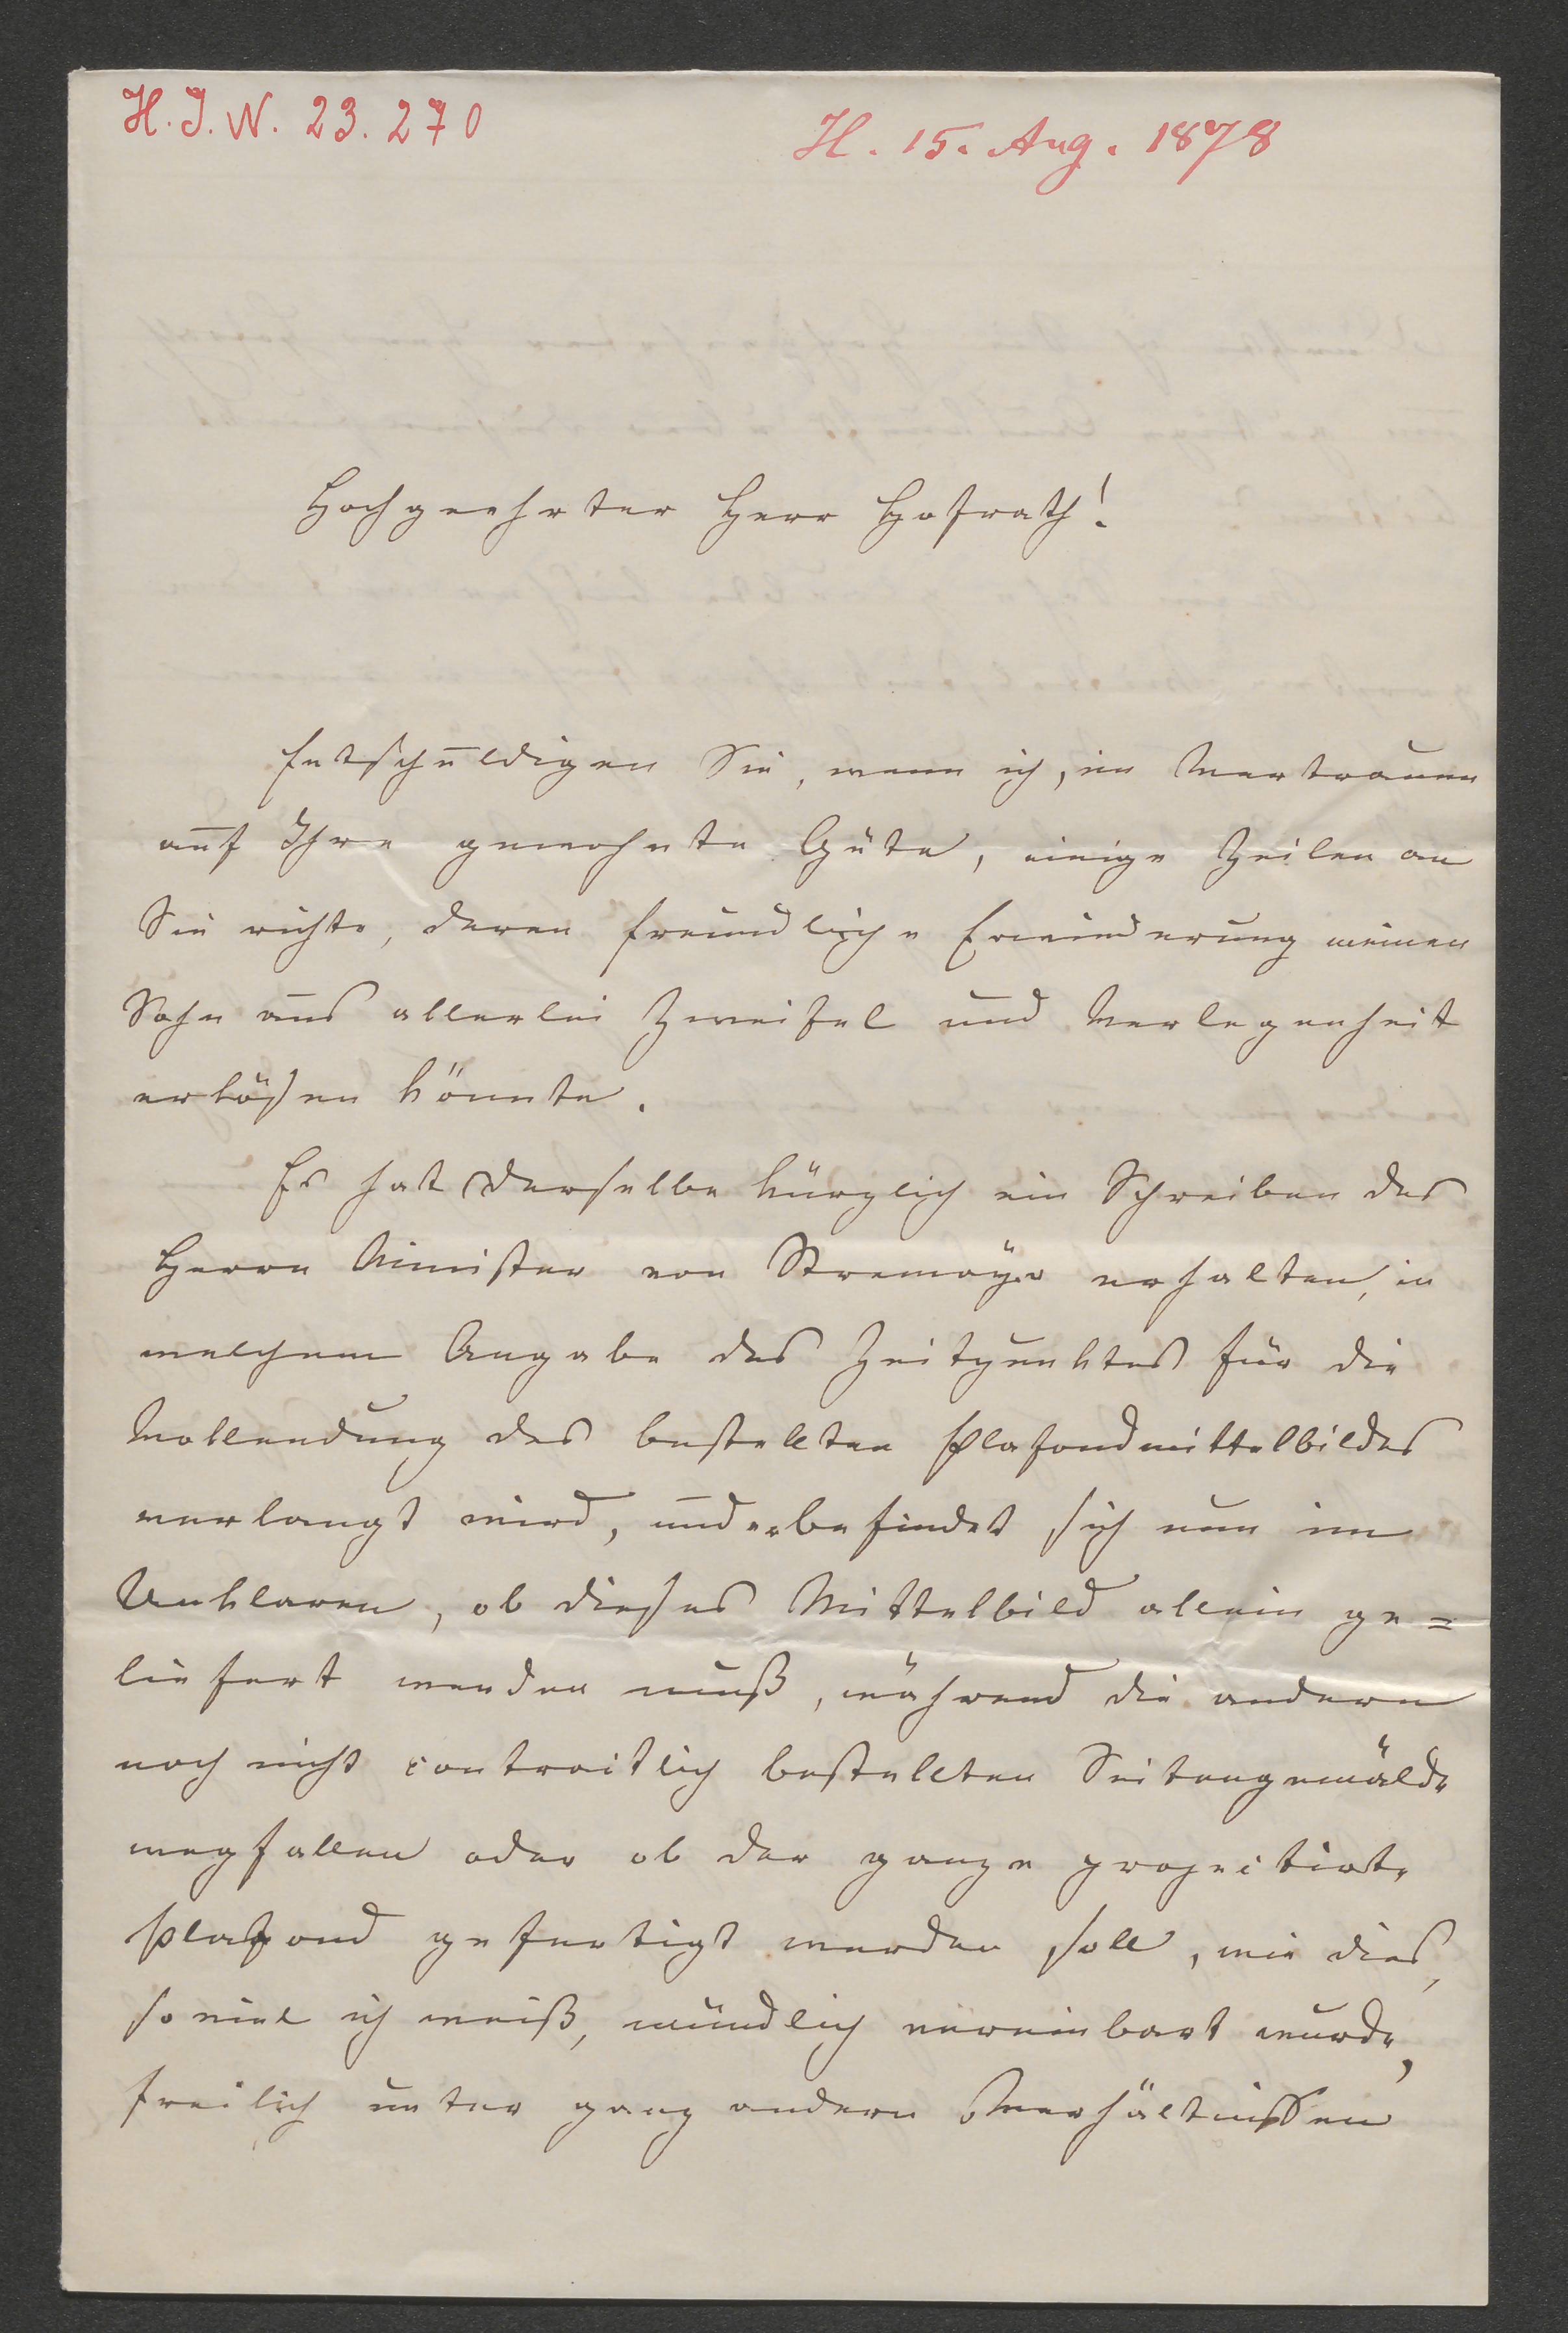 H. I. N. 23.270
H. 15. Aug. 1878
Hochgeehrter Herr Hofrath!
Entschuldigen Sie, wenn ich, im Vertrauen
auf Ihre gewohnte Güte, einige Zeilen an
Sie richte, deren freundliche Erwiederung meinen
Sohn aus allerlei Zweifel und Verlegenheit
erlösen könnte.
Es hat derselbe kürzlich ein Schreiben des
Herrn Minister von Stremayer erhalten, in
welchem Angabe des Zeitpunktes für die
Vollendung des bestellten Plafondmittelbildes
verlangt wird, und er befindet sich nun im
Unklaren, ob dieses Mittelbild allein ge=
liefert werden muß, während die andern
noch nicht contractlich bestellten Seitengemälde
wegfallen oder ob der ganze projectirte
Plafond gefertigt werden soll, wie dies,
so viel ich weiß, mündlich vereinbart wurde,
freilich unter ganz andern Verhältnissen